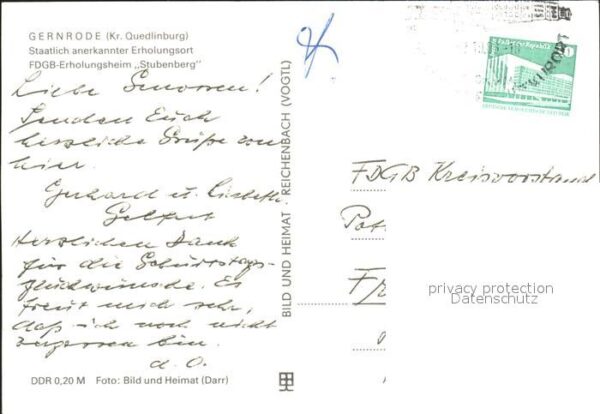 GERNRODE (Kr. Quedlinburg)
Staatlich anerkannter Erholungsort
FDGB-Erholungsheim „Stubenberg"
Liebe
Senden Euch
herzliche Grüße von
hier.
Gerhard u. Lisbeth
Herzlichen Dank
für die Geburtstags-
glückwünsche. Es
freut mich sehr,
daß ich noch nicht
vergessen bin.
d. O.
DDR 0,20 M Foto: Bild und Heimat (Darr)
BILD UND HEIMAT REICHENBACH (VOGTL)
Palast der Republik
10
KURORT
FDGB Kreisvorstand
privacy protection
Datenschutz